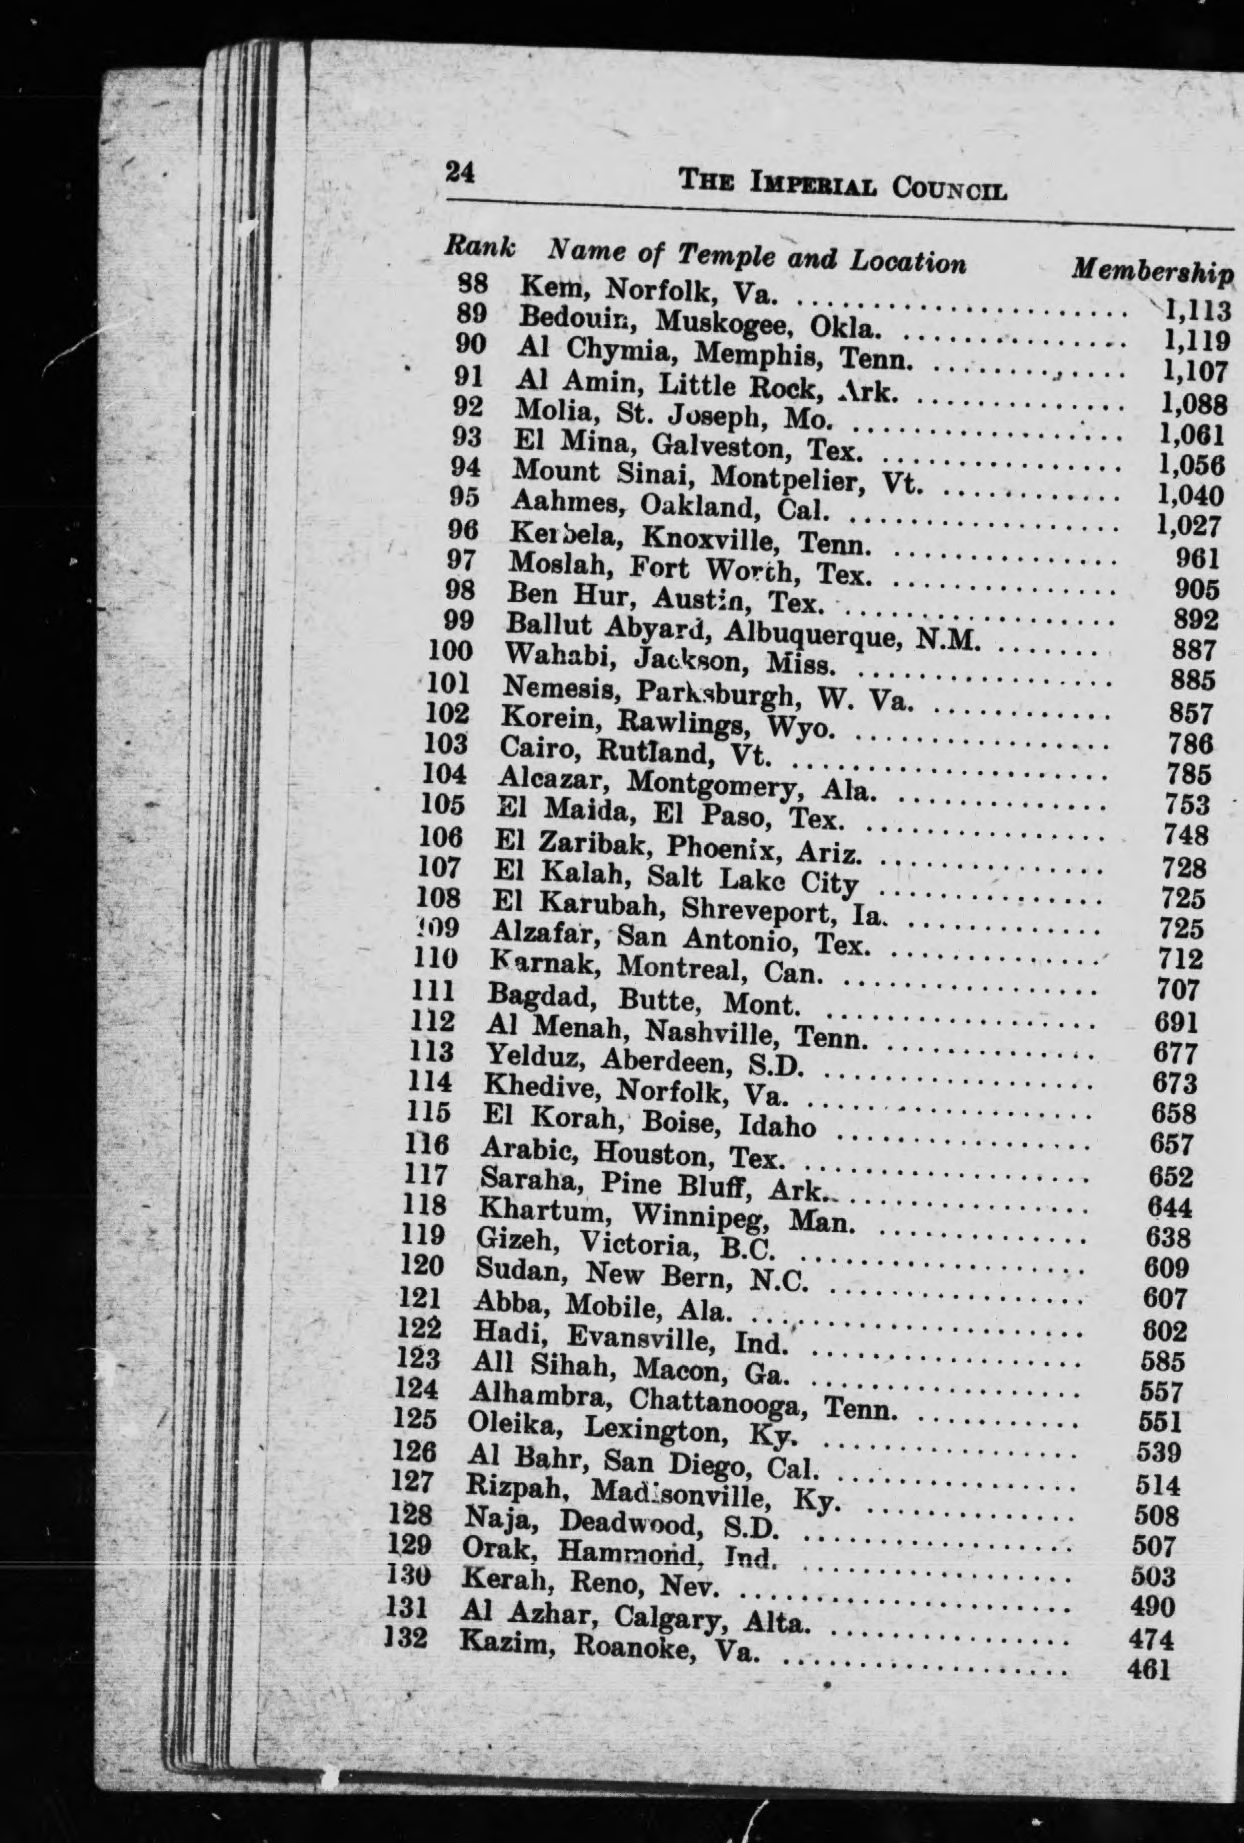 24 THE IMPERIAL COUNCIL
Rank Name of Temple and Location Membership
88 Kem, Norfolk, Va. .................. 1,113
89 Bedouin, Muskogee, Okla. ............ 1,119
90 Al Chymia, Memphis, Tenn. ........... 1,107
91 Al Amin, Little Rock, Ark. ............ 1,088
92 Molia, St. Joseph, Mo. ............... 1,061
93 El Mina, Galveston, Tex. ............. 1,056
94 Mount Sinai, Montpelier, Vt. .......... 1,040
95 Aahmes, Oakland, Cal. ............... 1,027
96 Kerbela, Knoxville, Tenn. ............ 961
97 Moslah, Fort Worth, Tex. ............ 905
98 Ben Hur, Austin, Tex. ............... 892
99 Ballut Abyard, Albuquerque, N.M. ....... 887
100 Wahabi, Jackson, Miss. .............. 885
101 Nemesis, Parksburgh, W. Va. .......... 857
102 Korein, Rawlings, Wyo. .............. 786
103 Cairo, Rutland, Vt. ................. 785
104 Alcazar, Montgomery, Ala. ............ 753
105 El Maida, El Paso, Tex. .............. 748
106 El Zaribak, Phoenix, Ariz. ............ 728
107 El Kalah, Salt Lake City ............ 725
108 El Karubah, Shreveport, Ia. .......... 725
109 Alzafar, San Antonio, Tex. ........... 712
110 Karnak, Montreal, Can. .............. 707
111 Bagdad, Butte, Mont. ............... 691
112 Al Menah, Nashville, Tenn. ........... 677
113 Yelduz, Aberdeen, S.D. .............. 673
114 Khedive, Norfolk, Va. ............... 658
115 El Korah, Boise, Idaho .............. 657
116 Arabic, Houston, Tex. ............... 652
117 Saraha, Pine Bluff, Ark. .............. 644
118 Khartum, Winnipeg, Man. ............ 638
119 Gizeh, Victoria, B.C. ................ 609
120 Sudan, New Bern, N.C. .............. 607
121 Abba, Mobile, Ala. ................. 602
122 Hadi, Evansville, Ind. ............... 585
123 All Sihah, Macon, Ga. ............... 557
124 Alhambra, Chattanooga, Tenn. ......... 551
125 Oleika, Lexington, Ky. ............... 539
126 Al Bahr, San Diego, Cal. ............. 514
127 Rizpah, Madisonville, Ky. ............ 508
128 Naja, Deadwood, S.D. ............... 507
129 Orak, Hammond, Ind. ............... 503
130 Kerah, Reno, Nev. .................. 490
131 Al Azhar, Calgary, Alta. ............. 474
132 Kazim, Roanoke, Va. ................ 461